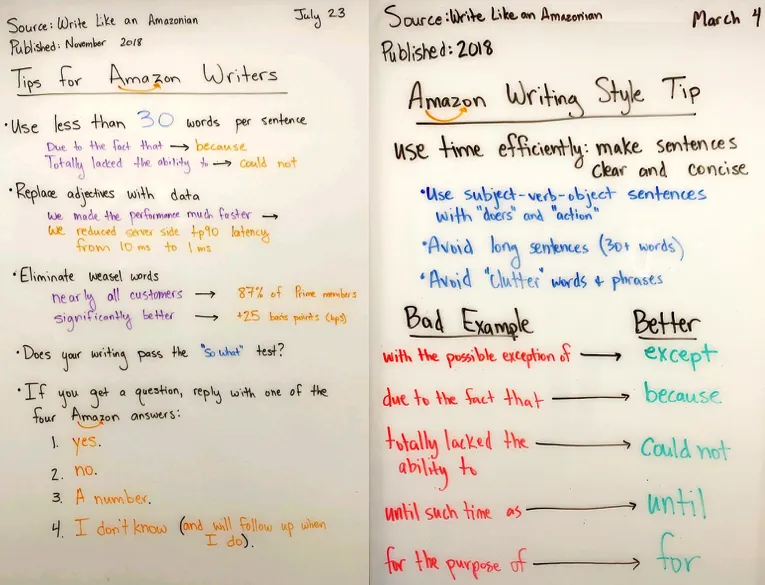 Source: Write Like an Amazonian
July 23
Published: November 2018
Tips for Amazon Writers
• Use less than 30 words per sentence
Due to the fact that → because
Totally lacked the ability to → could not
• Replace adjectives with data
we made the performance much faster →
We reduced server side tp90 latency
from 10 ms to 1 ms
• Eliminate weasel words
nearly all customers → 87% of Prime members
significantly better → +25 basis points (bps)
• Does your writing pass the "So what" test?
• If you get a question, reply with one of the
four Amazon answers:
1. yes.
2. no.
3. A number.
4. I don't know (and will follow up when
I do).
Source: Write Like an Amazonian
March 4
Published: 2018
Amazon Writing Style Tip
use time efficiently: make sentences
clear and concise
• Use subject-verb-object sentences
with "doers" and "action"
• Avoid long sentences (30+ words)
• Avoid "clutter" words + phrases
Bad Example Better
with the possible exception of → except
due to the fact that → because
totally lacked the → Could not
ability to
until such time as → until
for the purpose of → for